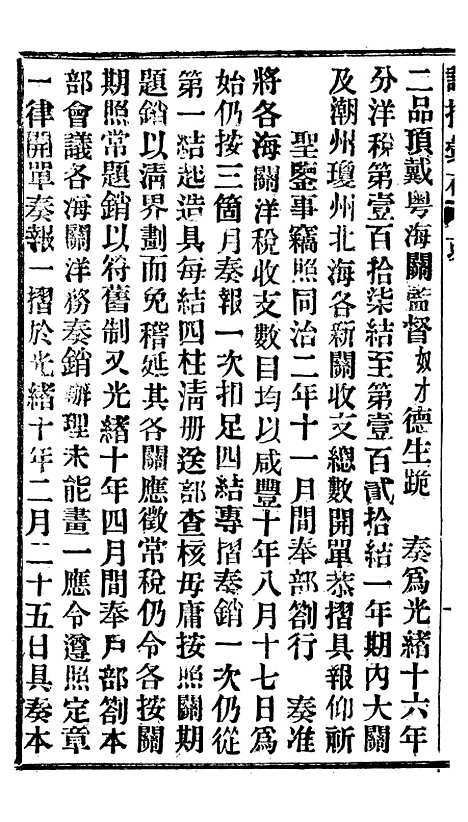 二品頂戴粵海關監督奴才德生跪　奏爲光緒十六年
分洋稅第壹百拾柒結至第壹百貳拾結一年期內大關
及潮州瓊州北海各新關收支總數開單恭摺具報仰祈
聖鑒事竊照同治二年十一月間奉部劄行　奏准
將各海關洋稅收支數目均以咸豐十年八月十七日爲
始仍按三箇月奏報一次扣足四結專摺奏銷一次仍從
第一結起造具每結四柱清册送部查核毋庸按照關期
題銷以清界劃而免稽延其各關應徵常稅仍令各按關
期照常題銷以符舊制又光緒十年四月間奉戶部劄本
部會議各海關洋務奏銷辦理未能畫一應令遵照定章
一律開單奏報一摺於光緒十年二月二十五日具奏本